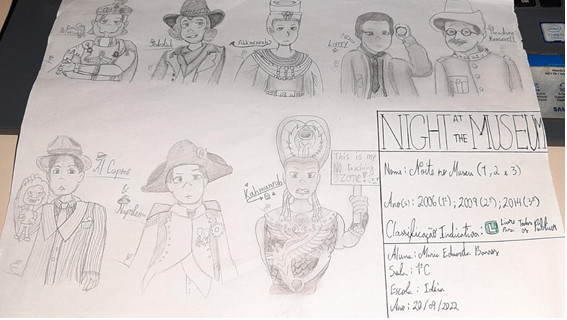 Jedediah
Ahkmenrah
Larry
Theodore
Roosevelt
Al Capone
&
Napoleon
Kahmunrah
This is my
NO Touching
ZONE!
NIGHT AT THE MUSEUM
Nome: Noite no Museu (1, 2 e 3)
Ano(s): 2006 (1º); 2009 (2º); 2014 (3º)
Classificação Indicativa: L Livre Todos
os Públicos
Aluna: Maria Eduarda
Sala: 1ºC
Escola: Idéia
Ano: 20/09/2022